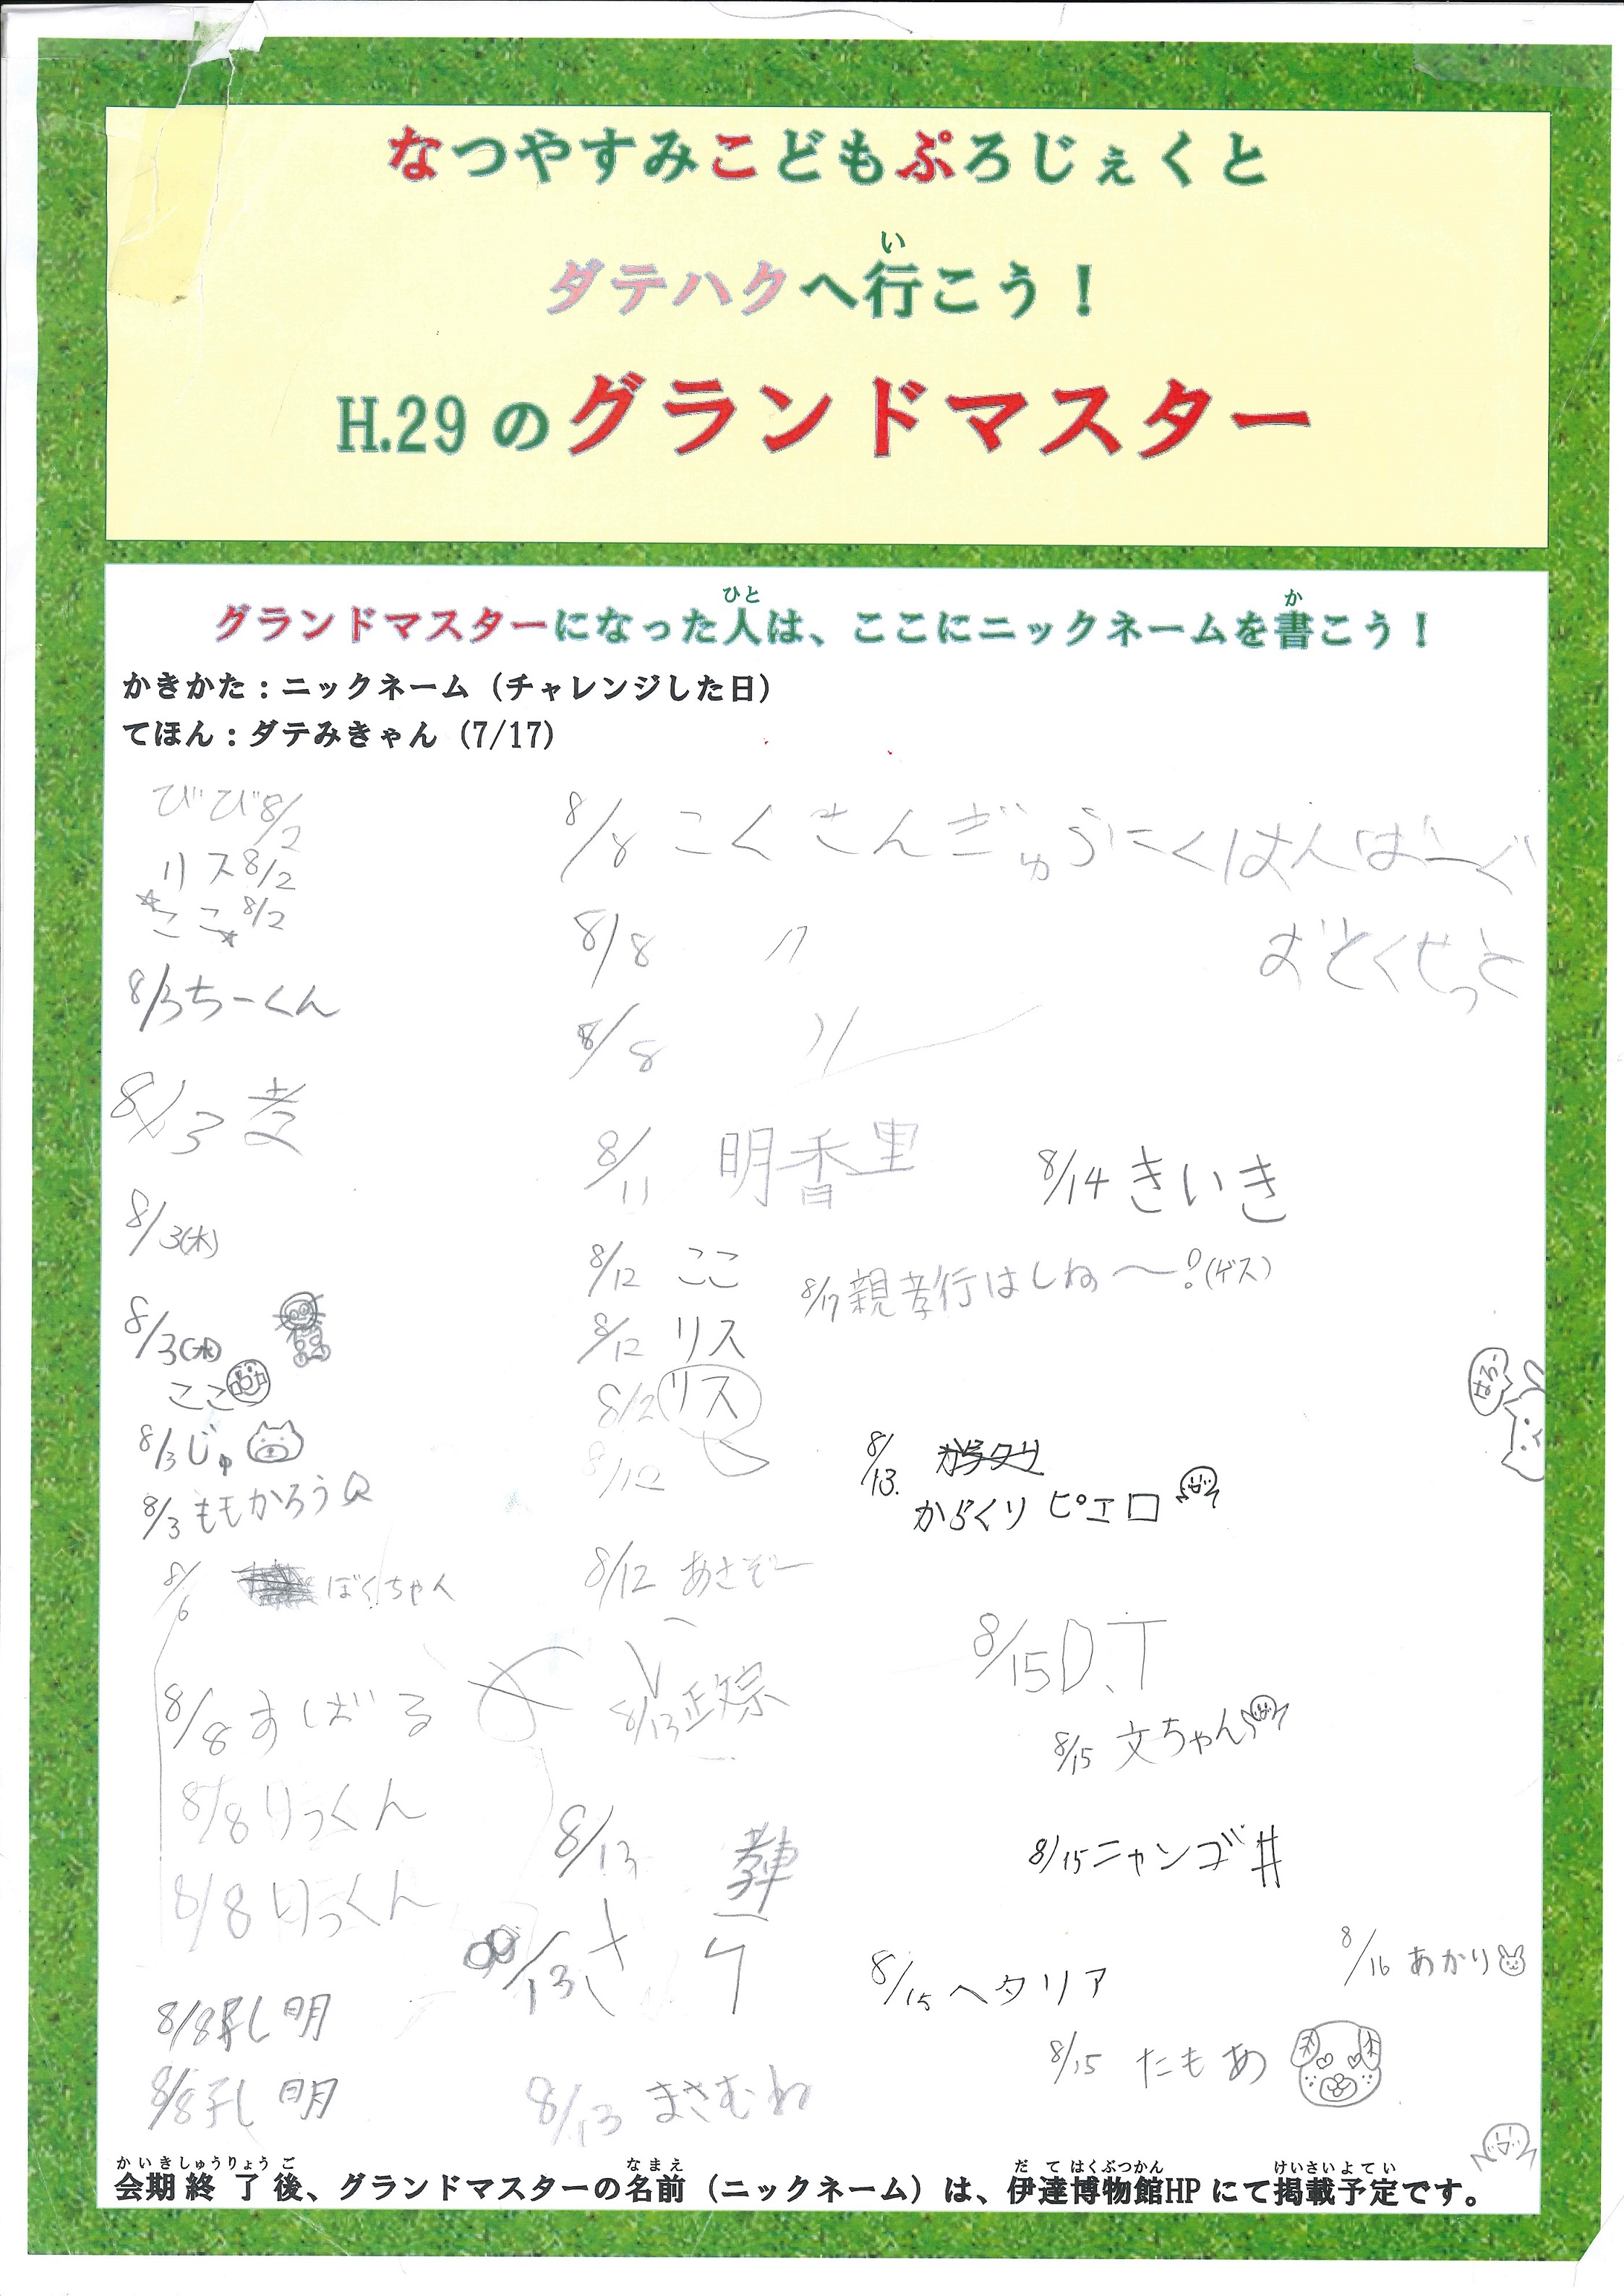 なつやすみこどもぷろじぇくと
ダテハクへ行こう！
H.29 のグランドマスター
グランドマスターになった人は、ここにニックネームを書こう！
かきかた：ニックネーム（チャレンジした日）
てほん：ダテみきゃん（7/17）
びび 8/2
リス 8/2
ここ 8/2
8/3 ちーくん
8/3
8/3(木)
8/3(木)
ここ
8/3 じゅ
8/3 ももかろう
8/6 ぼくちゃん
8/8 すばる
8/8 りっくん
8/8 りっくん
8/8 孔明
8/8 孔明
8/8 こくさんぎゅうにくはんばーぐ
おとくせっと
8/8 〃
8/8 〃
8/11 明香里
8/12 ここ
8/12 リス
8/2 リス
8/12
8/12 あさぞー
8/13 政宗
8/13
8/13
8/13 まさむね
8/14 きいき
8/17 親孝行はしね〜!(ゲス)
はろー
8/13. からくりピエロ
8/15 D.T
8/15 文ちゃん
8/15 ニャンゴ井
8/15 ヘタリア
8/16 あかり
8/15 たもあ
会期終了後、グランドマスターの名前（ニックネーム）は、伊達博物館HPにて掲載予定です。